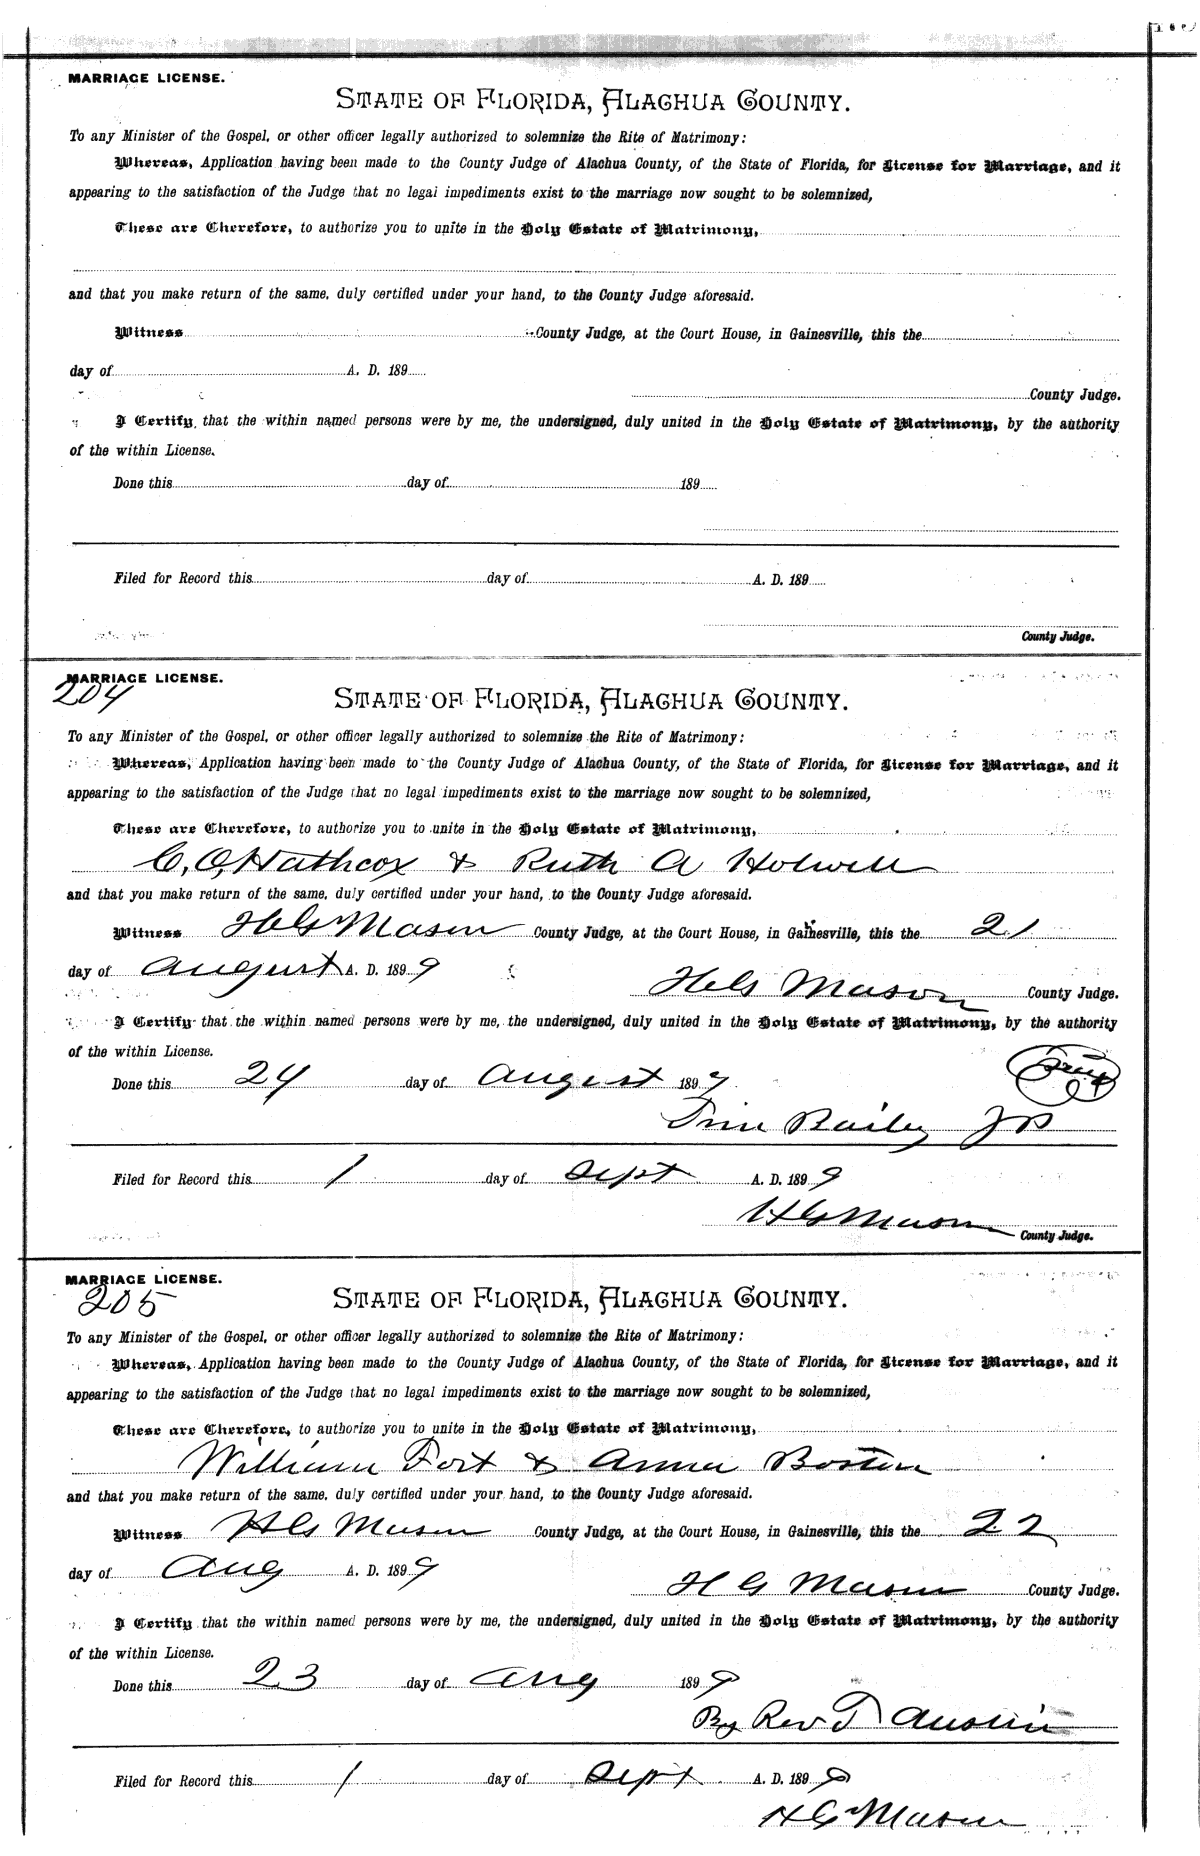 MARRIAGE LICENSE.
STATE OF FLORIDA, ALACHUA COUNTY.
To any Minister of the Gospel, or other officer legally authorized to solemnize the Rite of Matrimony:
Whereas, Application having been made to the County Judge of Alachua County, of the State of Florida, for License for Marriage, and it
appearing to the satisfaction of the Judge that no legal impediments exist to the marriage now sought to be solemnized,
These are Therefore, to authorize you to unite in the Holy Estate of Matrimony,
and that you make return of the same, duly certified under your hand, to the County Judge aforesaid.
Witness County Judge, at the Court House, in Gainesville, this the
day of A. D. 189
County Judge.
I Certify, that the within named persons were by me, the undersigned, duly united in the Holy Estate of Matrimony, by the authority
of the within License.
Done this day of 189
Filed for Record this day of A. D. 189
County Judge.
MARRIAGE LICENSE.
204
STATE OF FLORIDA, ALACHUA COUNTY.
To any Minister of the Gospel, or other officer legally authorized to solemnize the Rite of Matrimony:
Whereas, Application having been made to the County Judge of Alachua County, of the State of Florida, for License for Marriage, and it
appearing to the satisfaction of the Judge that no legal impediments exist to the marriage now sought to be solemnized,
These are Therefore, to authorize you to unite in the Holy Estate of Matrimony,
C. O. Hathcox & Ruth A Holwell
and that you make return of the same, duly certified under your hand, to the County Judge aforesaid.
Witness H G Mason County Judge, at the Court House, in Gainesville, this the 21
day of August A. D. 1899
H G Mason County Judge.
I Certify that the within named persons were by me, the undersigned, duly united in the Holy Estate of Matrimony, by the authority
of the within License.
Done this 24 day of August 1899
Bailey JP
Filed for Record this 1 day of Sept A. D. 1899
H G Mason
County Judge.
MARRIAGE LICENSE.
205
STATE OF FLORIDA, ALACHUA COUNTY.
To any Minister of the Gospel, or other officer legally authorized to solemnize the Rite of Matrimony:
Whereas, Application having been made to the County Judge of Alachua County, of the State of Florida, for License for Marriage, and it
appearing to the satisfaction of the Judge that no legal impediments exist to the marriage now sought to be solemnized,
These are Therefore, to authorize you to unite in the Holy Estate of Matrimony,
William Fort & Anna Bostin
and that you make return of the same, duly certified under your hand, to the County Judge aforesaid.
Witness H G Mason County Judge, at the Court House, in Gainesville, this the 22
day of Aug A. D. 1899
H G Mason County Judge.
I Certify that the within named persons were by me, the undersigned, duly united in the Holy Estate of Matrimony, by the authority
of the within License.
Done this 23 day of Aug 1899
By Rev T Austin
Filed for Record this 1 day of Sept A. D. 1899
H G Mason